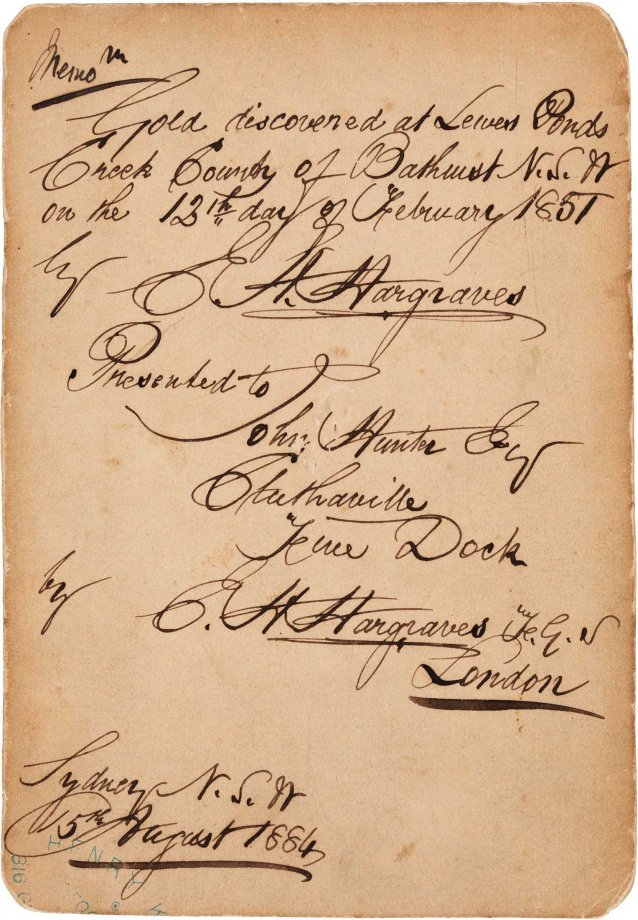 Memo m
Gold discovered at Lewes Ponds
Creek County of Bathurst N.S.W
on the 12th day of February 1851
by E. H. Hargraves
Presented to
John Hunter Esq
Cluthaville
Five Dock
by E. H Hargraves F.G.S
London
Sydney N.S.W
15th August 1884
HENRY